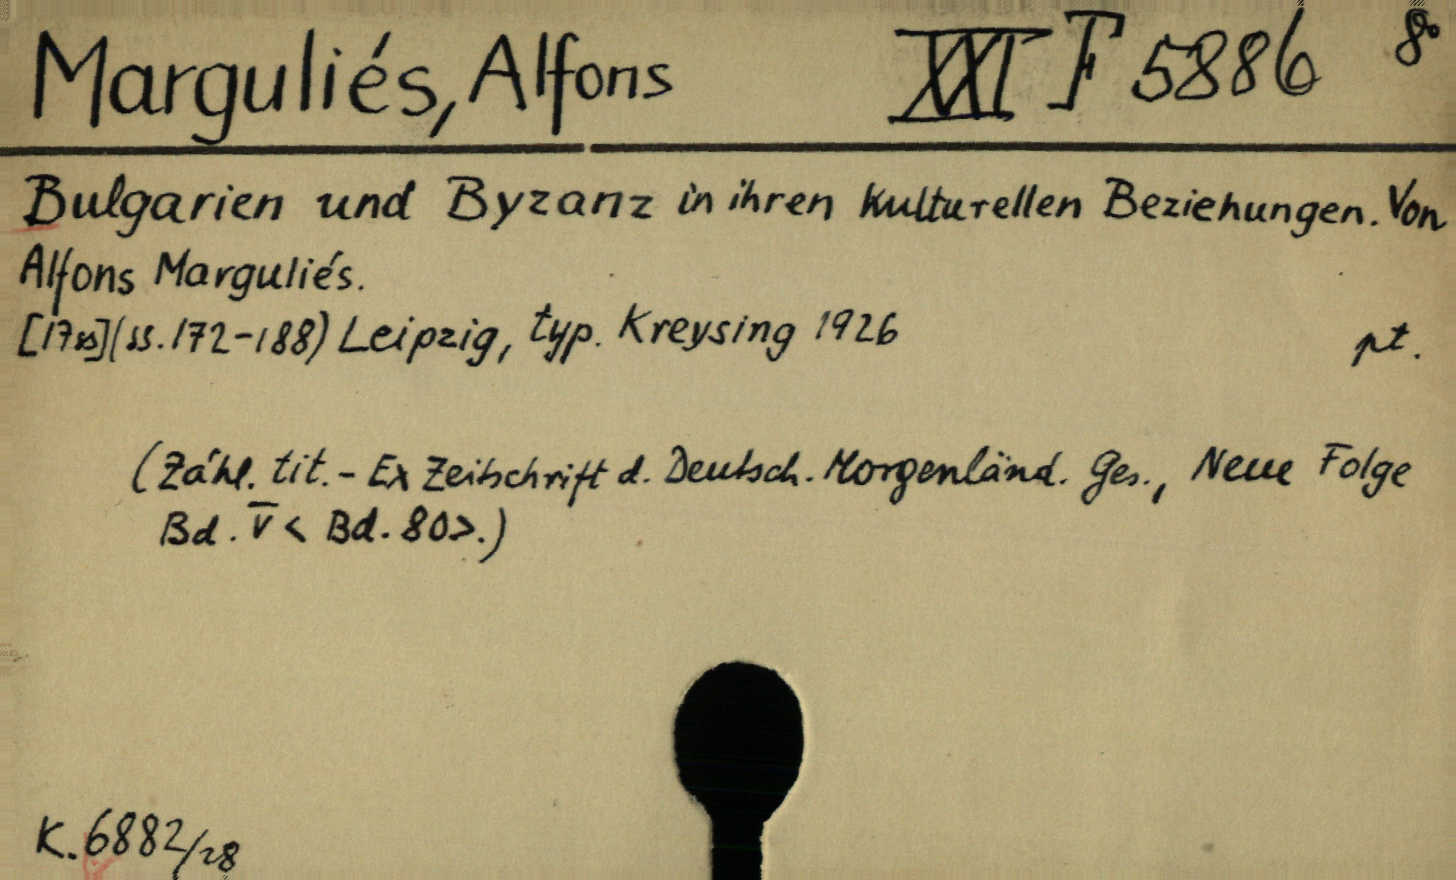 Marguliés, Alfons XXI F 5886 8°
Bulgarien und Byzanz in ihren kulturellen Beziehungen. Von
Alfons Marguliés.
[17 ss] (ss. 172-188) Leipzig, typ. Kreysing 1926 pt.
(Záhl. tit. - Ex Zeitschrift d. Deutsch. Morgenländ. Ges., Neue Folge
Bd. V < Bd. 80>.)
K. 6882/28